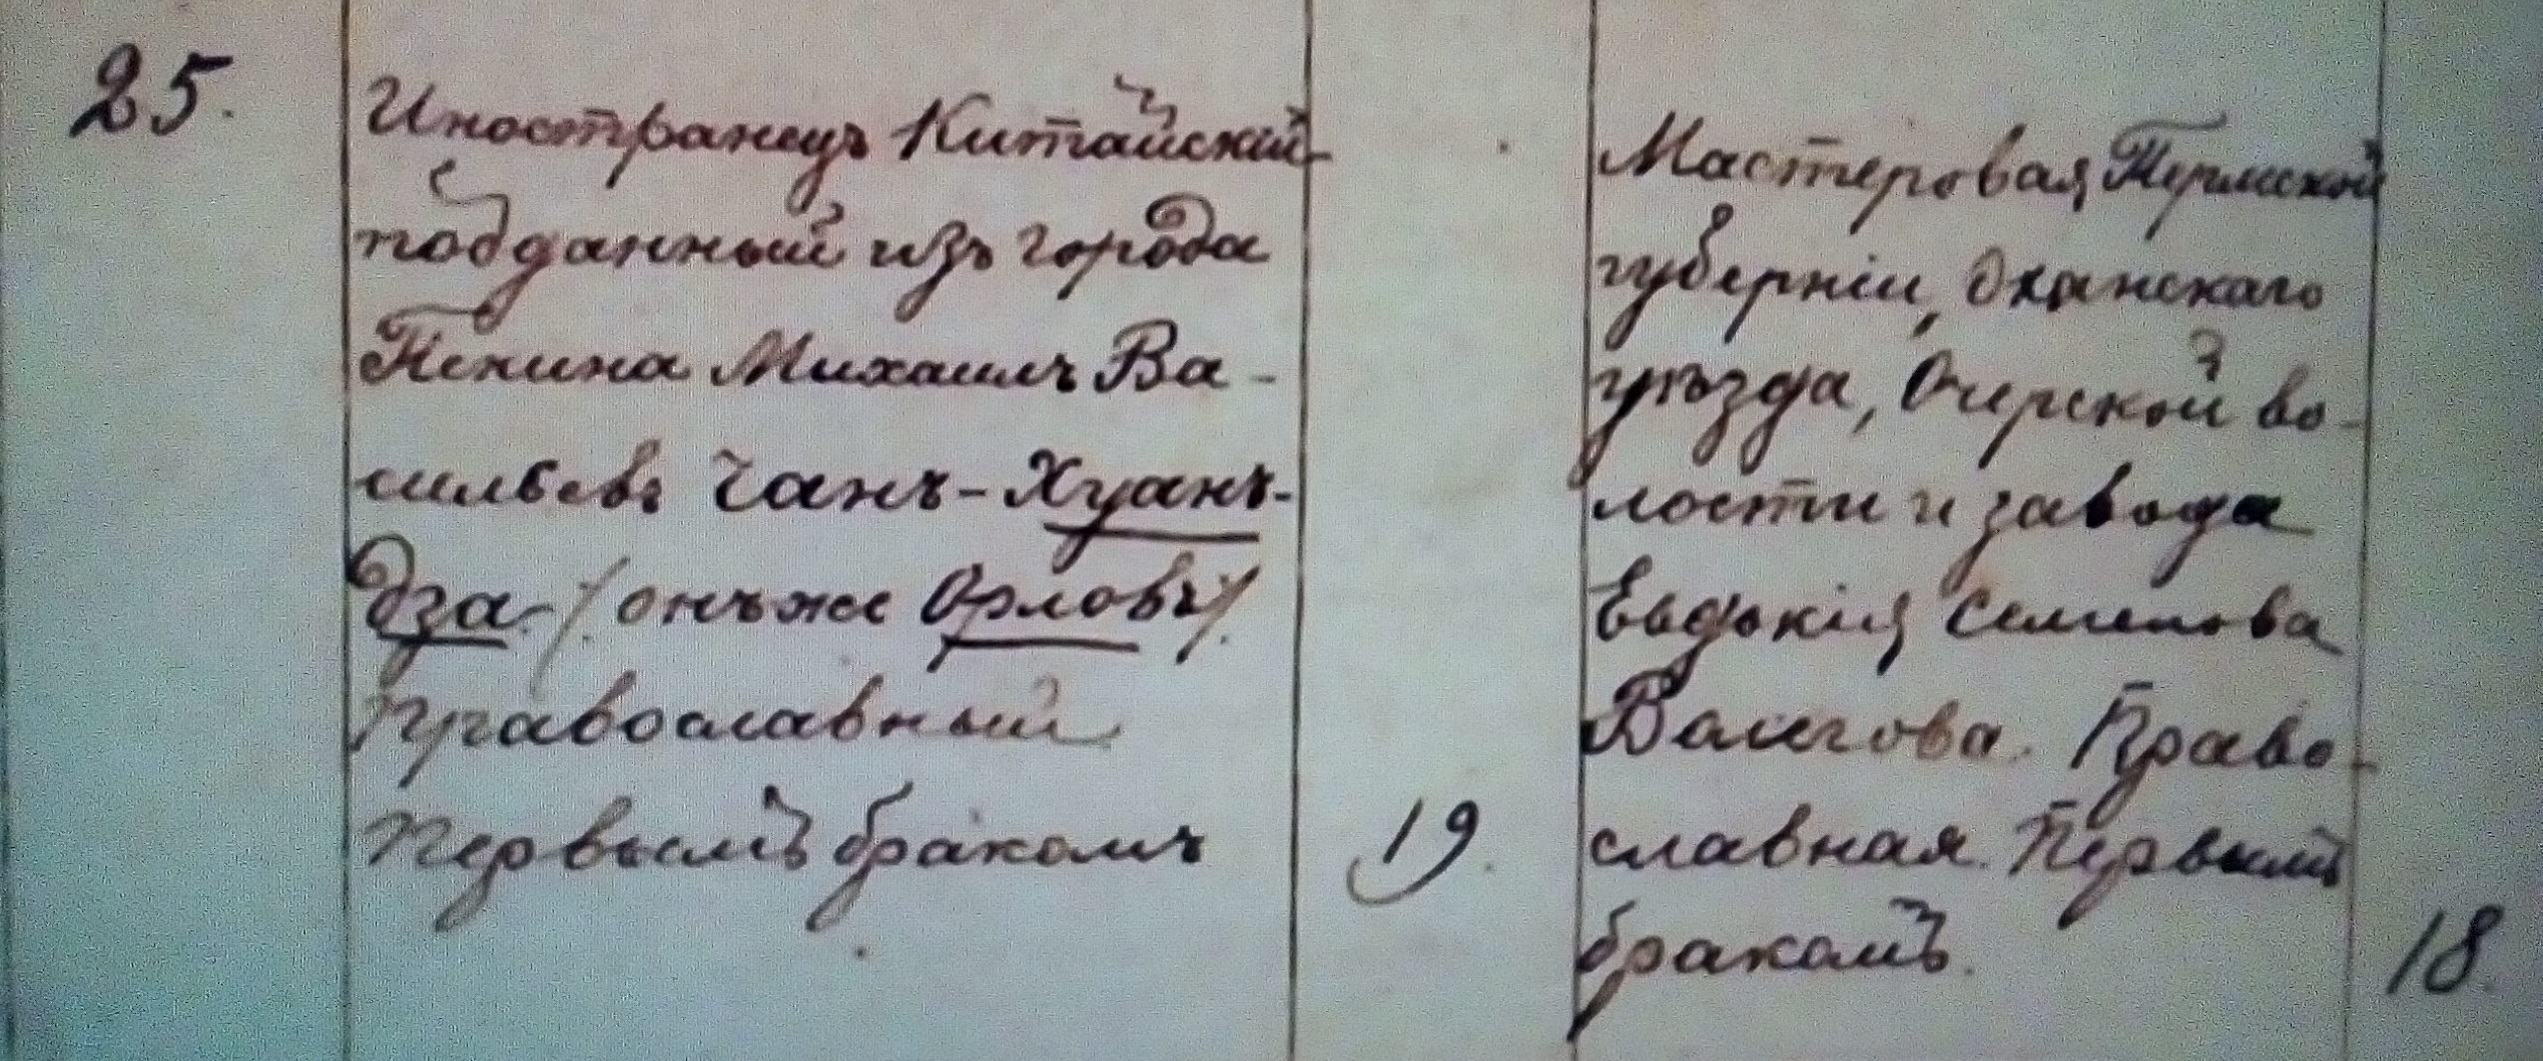 25.
Иностранецъ Китайскій
подданный изъ города
Пекина Михаилъ Ва-
сильевъ Чанъ-Хуанъ-
дза (онъ же Орловъ)
Православный
Первымъ бракомъ
19.
Мастеровая Пермской
губерніи, Оханскаго
уѣзда, Очерской во-
лости и завода
Евдокія Семенова
Право-
славная. Первымъ
бракомъ.
18.